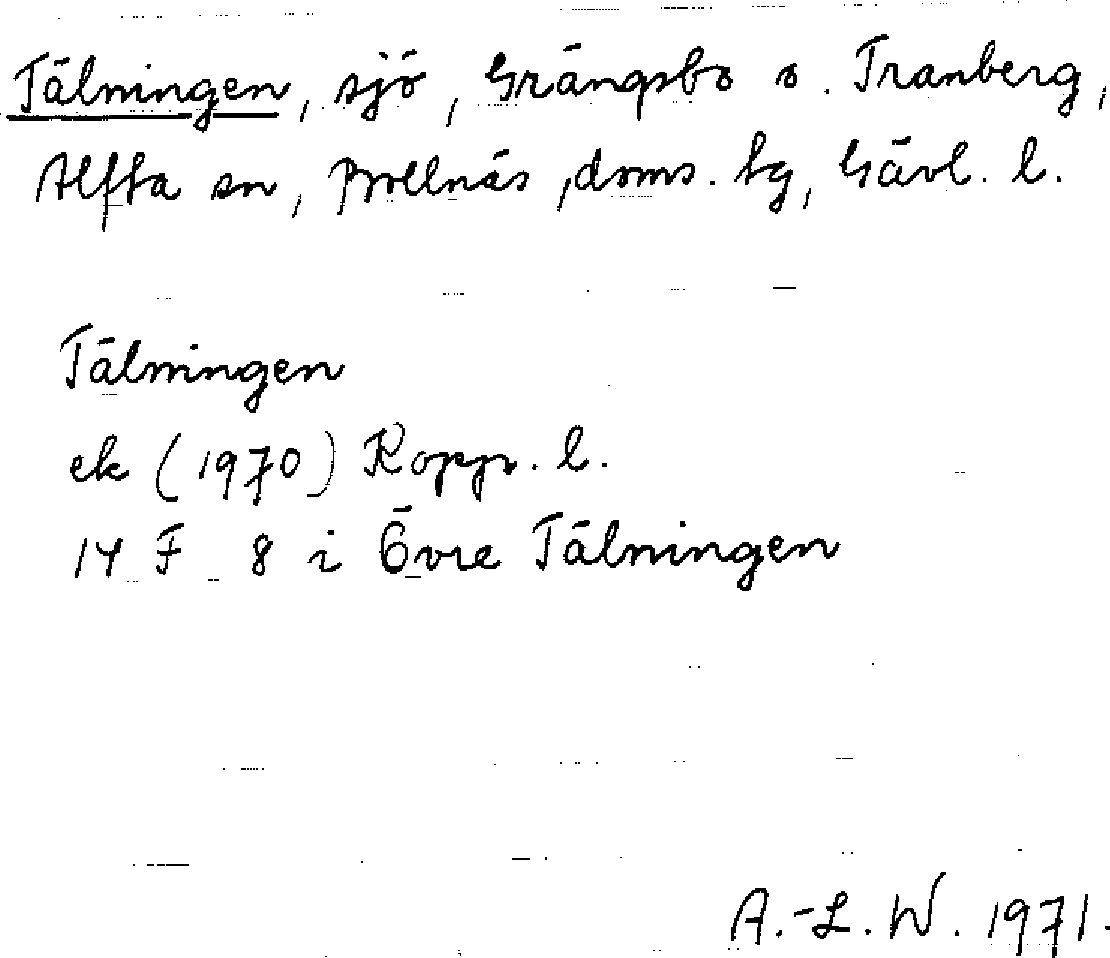 Tälningen, sjö, Grängsbo o. Tranberg,
Alfta sn, Bollnäs, doms. tg, Gävl. l.
Tälningen
ek (1970) Kopp. l.
14 F 8 i Övre Tälningen
A.-L. W. 1971.